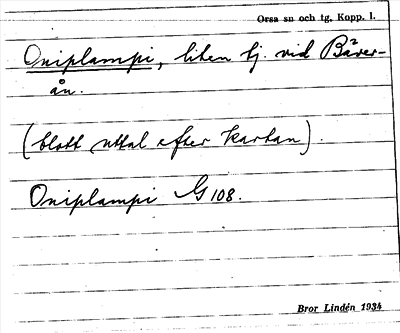 Orsa sn och tg, Kopp. l.
Oniplampi, liten tj. vid Bäver-
ån.
(blott uttal efter kartan).
Oniplampi G 108.
Bror Lindén 1934